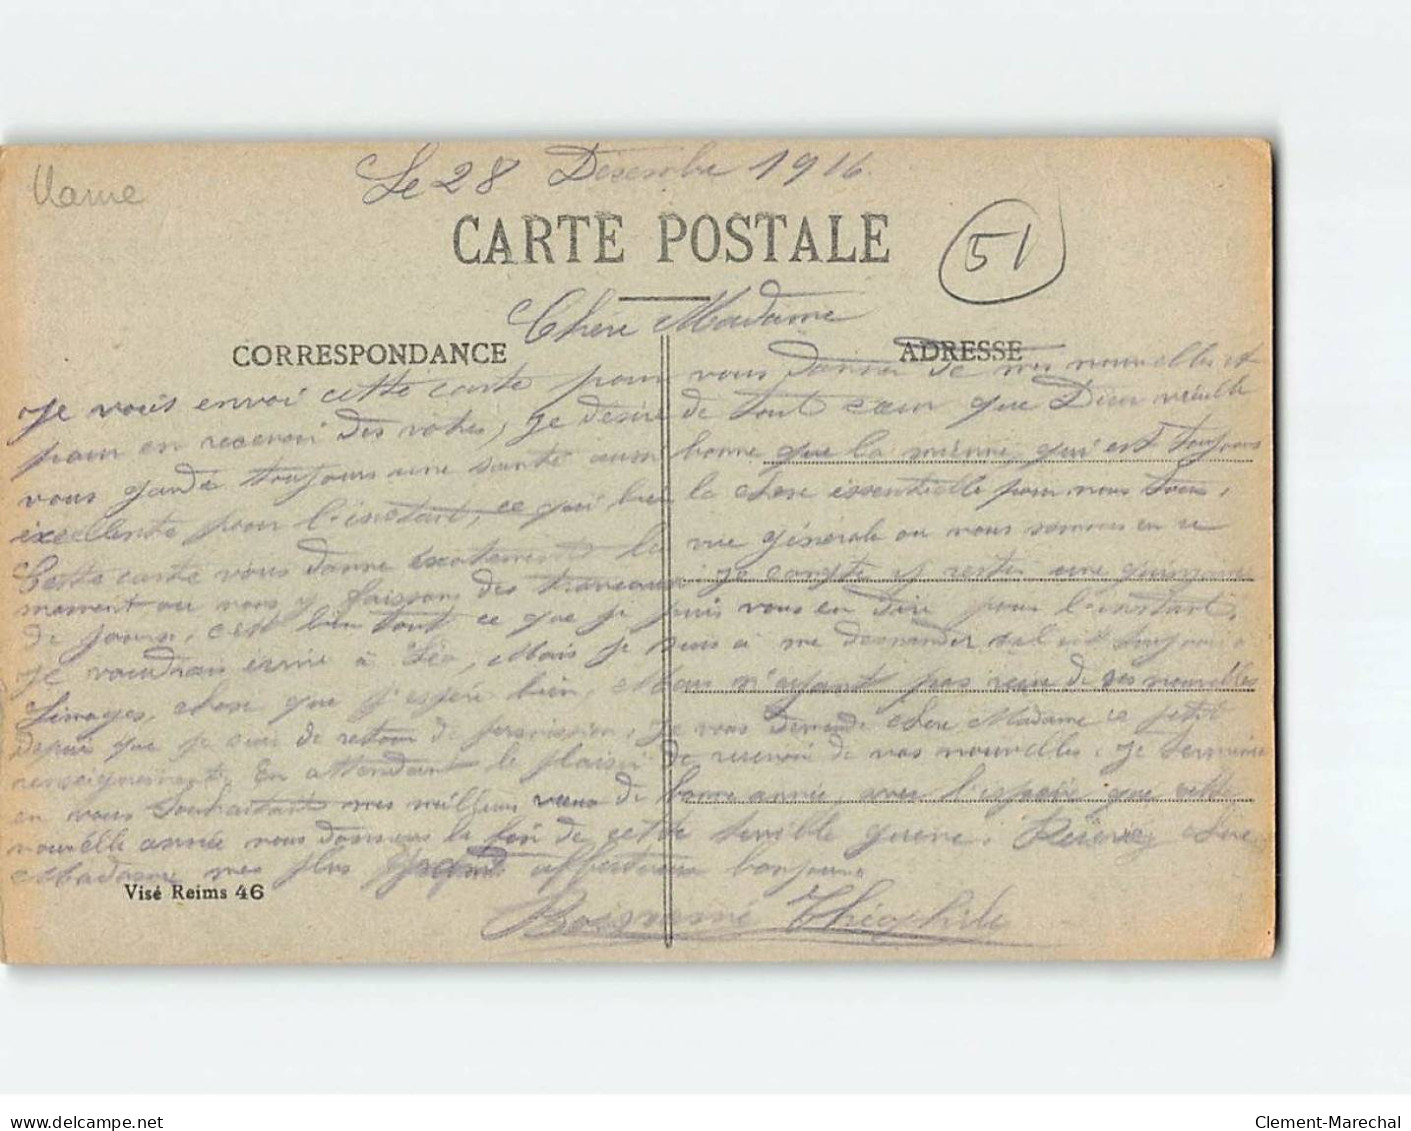 Marne
Le 28 Désembre 1916
CARTE POSTALE
51
Chère Madame
CORRESPONDANCE
ADRESSE
Je vous envoi cette carte pour vous donner de mes nouvelles et
pour en recevoir des votres, je désire de tout cœur que Dieu veuille
vous garder toujours une santé aussi bonne que la mienne qui est toujours
excellente pour l'instant, ce qui bien la chose essentielle pour nous tous,
Cette carte vous donne exatement la vue générale ou nous sommes en ce
moment ou nous y faisons des travaux je compte y rester une quinzaine
de jours, c'est bien tout ce que je puis vous en dire pour l'instant,
Je voudrais écrire à Léo, Mais je suis à me demander est toujours à
Limoges, chose que j'espère bien, Mais n'ayant pas reçu de ses nouvelles
depuis que je suis de retour de permission, je vous demande chère Madame ce petit
renseignement, En attendant le plaisir de recevoir de vos nouvelles, je termine
en vous souhaitant mes meilleurs vœux de bonne année, avec l'espoir que cette
nouvelle année nous donnera la fin de cette terrible guerre, Recevez chère
Madame mes plus affectueux bonjours
Visé Reims 46
Théophile
www.delcampe.net
Clement-Marechal